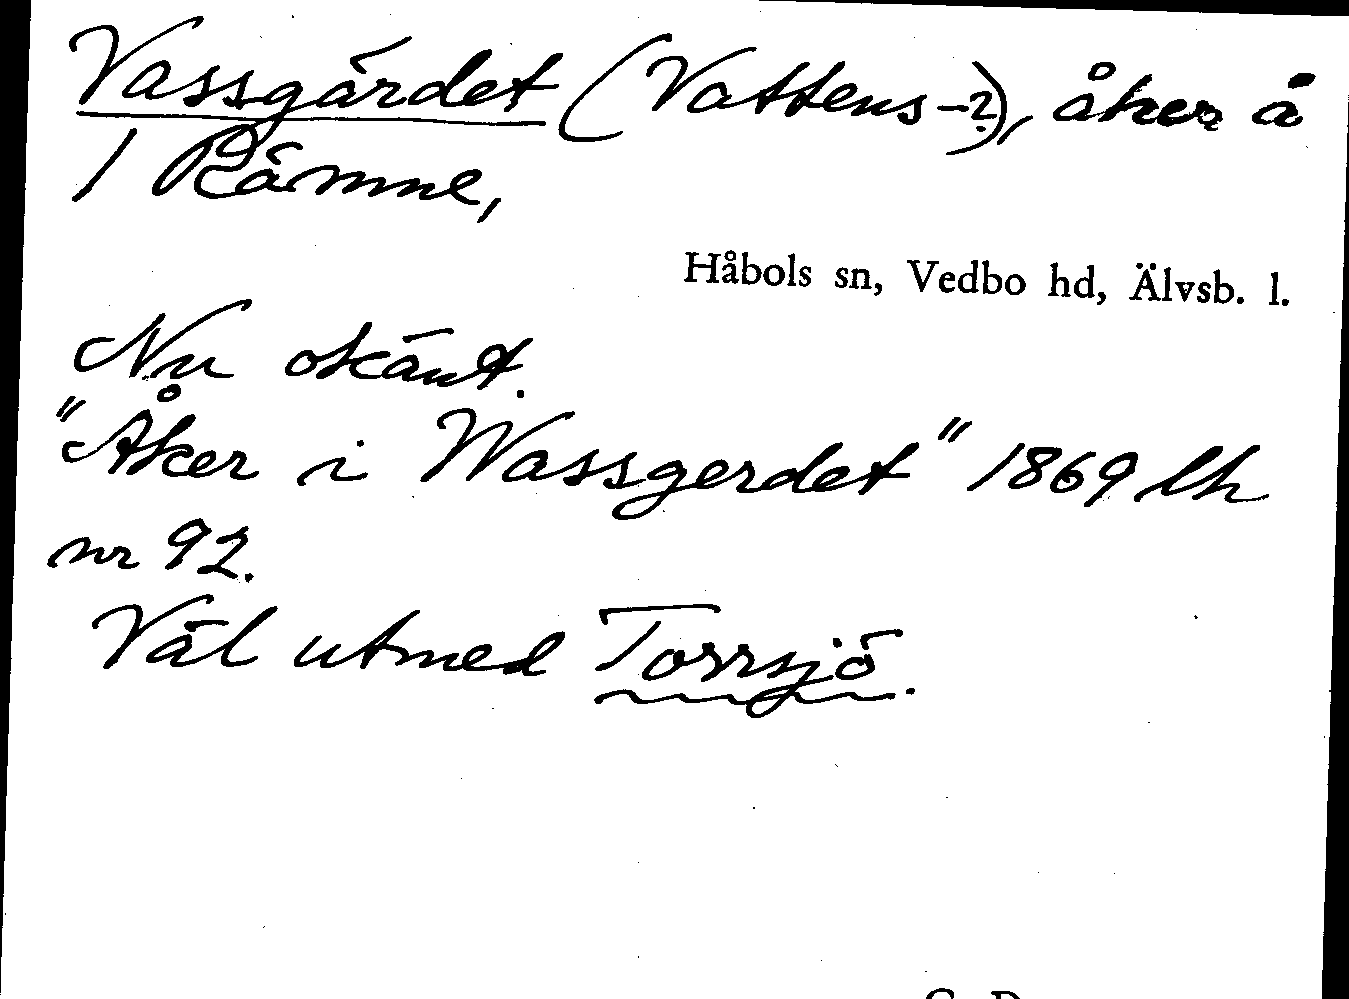 Vassgärdet (Vattens-?), åker å
1 Råmne,
Håbols sn, Vedbo hd, Älvsb. l.
Nu okänt.
"Åker i Wassgerdet" 1869 lh
nr 92.
Väl utmed Torrsjö.